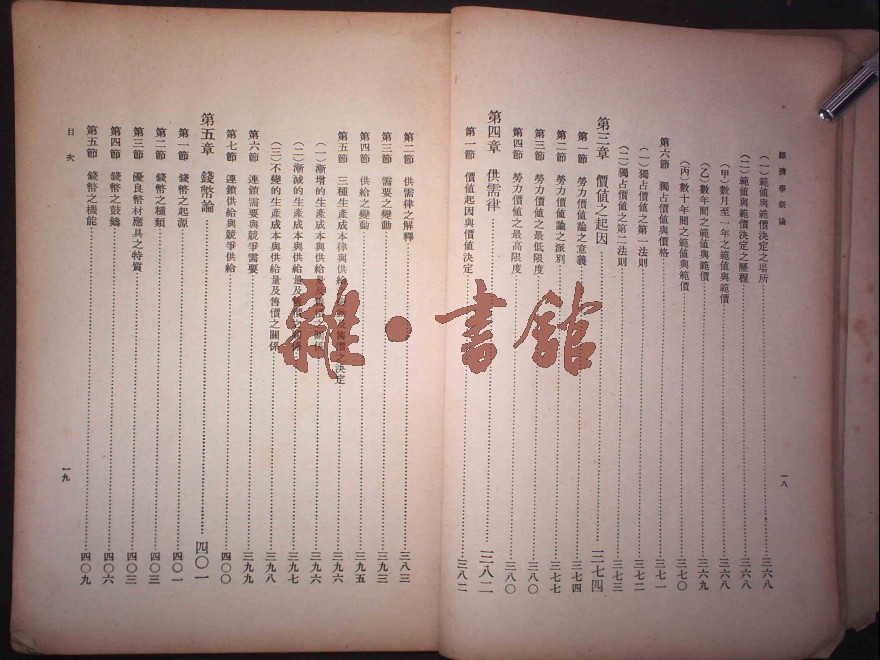 經濟學新論
(一)範值與範價決定之場所……三六八
(二)範值與範價決定之歷程……三六八
(甲)數月至一年之範值與範價……三六八
(乙)數年間之範值與範價……三六九
(丙)數十年間之範值與範價……三七〇
第六節 獨占價值與價格……三七一
(一)獨占價值之第一法則……三七二
(二)獨占價值之第二法則……三七三
第三章 價值之起因……三七四
第一節 勞力價值論之意義……三七四
第二節 勞力價值論之派別……三七七
第三節 勞力價值之最低限度……三八〇
第四節 勞力價值之最高限度……三八〇
第四章 供需律……三八二
第一節 價值起因與價值決定……三八二
一八
第二節 供需律之解釋……三八三
第三節 需要之變動……三九三
第四節 供給之變動……三九五
第五節 三種生產成本律與供給之變動及售價之決定……三九六
(一)漸增的生產成本與供給量及售價之關係……三九六
(二)漸減的生產成本與供給量及售價之關係……三九七
(三)不變的生產成本與供給量及售價之關係……三九八
第六節 連鎖需要與競爭需要……三九九
第七節 連鎖供給與競爭供給……四〇〇
第五章 錢幣論……四〇一
第一節 錢幣之起源……四〇一
第二節 錢幣之種類……四〇三
第三節 優良幣材應具之特質……四〇三
第四節 錢幣之鼓鑄……四〇六
第五節 錢幣之機能……四〇九
目次
一九
雜·書館